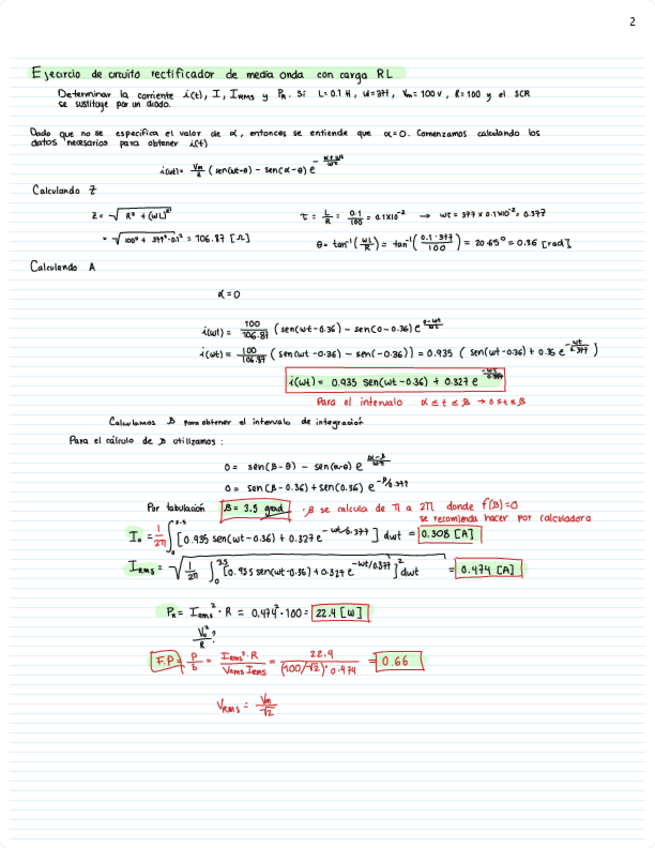 2
Ejercicio de circuito rectificador de media onda con carga RL
Determinar la corriente i(t), I, I_RMS y P_R. Si L=0.1 H, w=377, V_m=100 V, R=100 y el SCR
se sustituye por un diodo.
Dado que no se especifica el valor de α, entonces se entiende que α=0. Comenzamos calculando los
datos necesarios para obtener i(t)
i(wt)= V_m/Z (sen(wt-θ) - sen(α-θ) e
Calculando Z
Z = √(R² + (wL)²)
τ = L/R = 0.1/100 = 0.1x10⁻² → wτ = 377 x 0.1x10⁻² = 0.377
= √(100² + 377²·0.1²) = 106.87 [Ω]
θ = tan⁻¹(wL/R) = tan⁻¹(0.1·377/100) = 20.65° = 0.36 [rad]
Calculando A
α = 0
i(wt) = 100/106.87 (sen(wt-0.36) - sen(0-0.36) e
i(wt) = 100/106.87 (sen(wt-0.36) - sen(-0.36)) = 0.935 (sen(wt-0.36) + 0.35 e^(-wt/0.377))
i(wt) = 0.935 sen(wt-0.36) + 0.327 e^(-wt/0.377)
Para el intervalo α ≤ t ≤ β → 0 ≤ t ≤ β
Calculamos β para obtener el intervalo de integración
Para el cálculo de β utilizamos :
0 = sen(β-θ) - sen(α-θ) e^((α-β)/wτ)
0 = sen(β-0.36) + sen(0.36) e^(-β/0.377)
Por tabulación β = 3.5 grad · β se calcula de π a 2π donde f(β)=0
se recomienda hacer por calculadora
I_o = 1/2π ∫₀^3.5 [0.935 sen(wt-0.36) + 0.327 e^(-wt/0.377)] dwt = 0.308 [A]
I_RMS = √(1/2π ∫₀^3.5 [0.935 sen(wt-0.36) + 0.327 e^(-wt/0.377)]² dwt) = 0.474 [A]
P_R = I_RMS² · R = 0.474² · 100 = 22.4 [W]
V_o²/R ?
F.P = P/S = I_RMS² · R / V_RMS I_RMS = 22.4 / (100/√2) · 0.474 = 0.66
V_RMS = V_m/√2